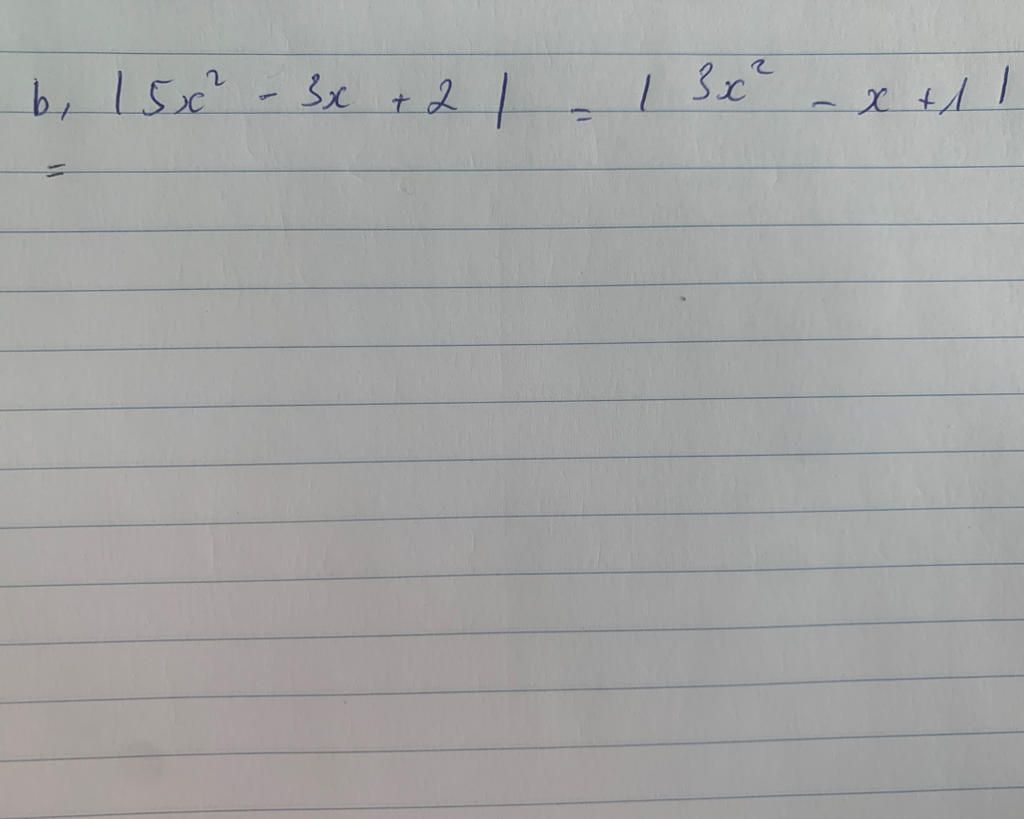 b, | 5x² - 3x + 2 | = | 3x² - x + 1 |
=